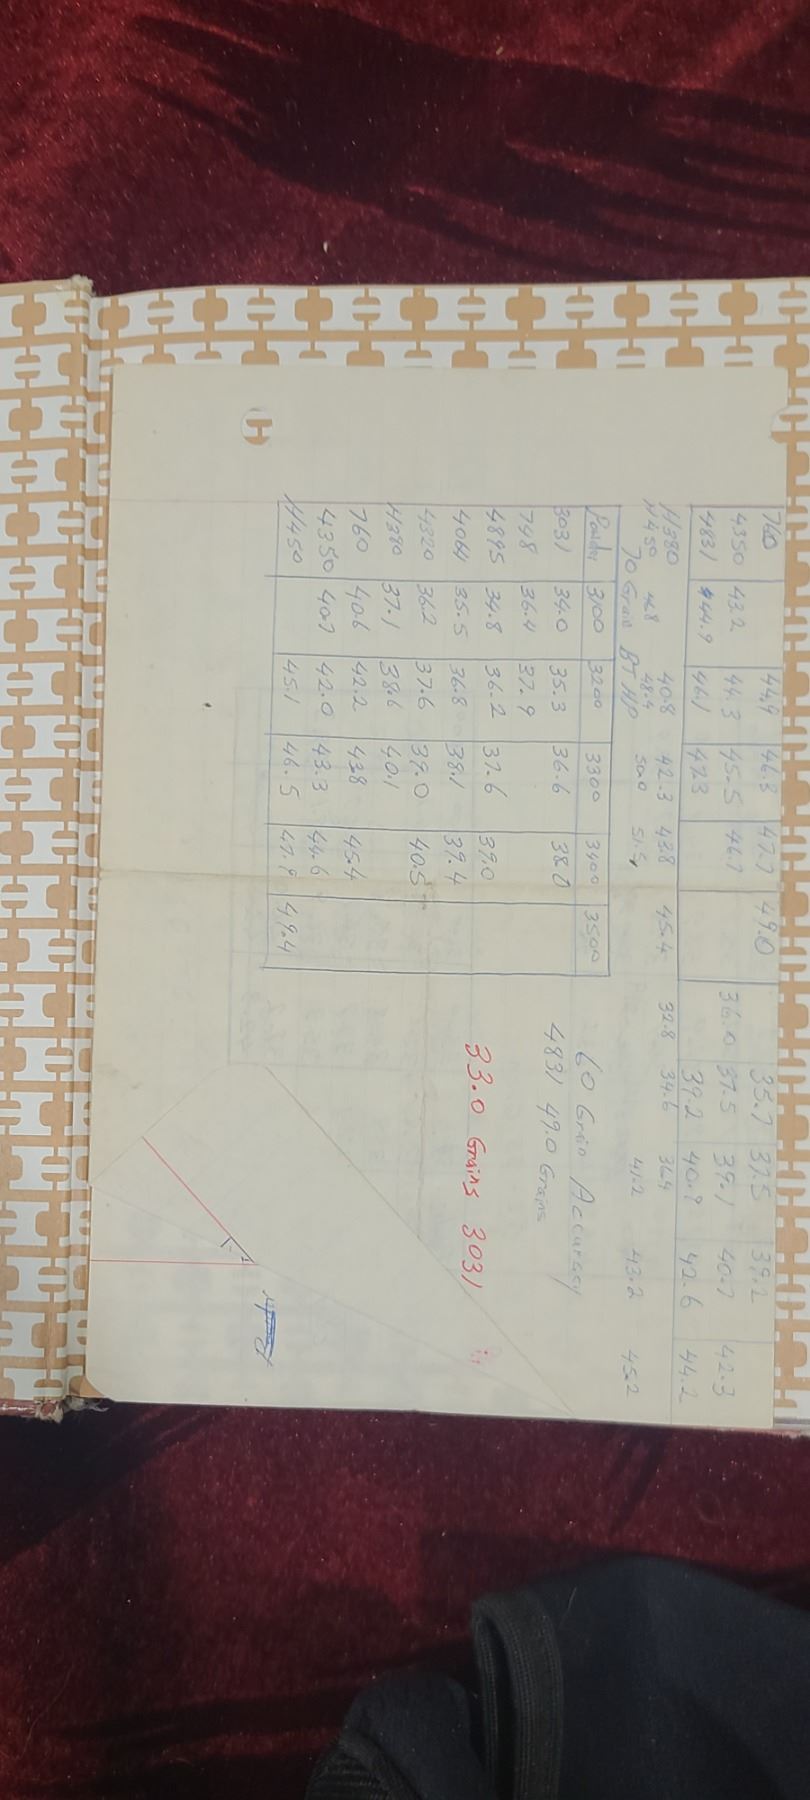 760 44.9 46.8 47.7 49.0 35.7 37.5 39.2
4350 43.2. 44.3 45.5 46.7 36.0 37.5 39.1 40.7 42.3
4831 44.9 46.1 47.3 39.2 40.9 42.6 44.2
H380 40.8 42.3 43.8 45.4 32.8 34.6 36.4
H450 46.8 48.4 50.0 51.5 41.2 43.2 45.2
70 Grain BT HP
Powder 3100 3200 3300 3400 3500
60 Grain Accuracy
3031 34.0 35.3 36.6 38.0
4831 49.0 Grains
748 36.4 37.9
4895 34.8 36.2 37.6 39.0
33.0 Grains 3031
4064 35.5 36.8 38.1 39.4
4320 36.2 37.6 39.0 40.5
H380 37.1 38.6 40.1
760 40.6 42.2 43.8 45.4
4350 40.7 42.0 43.3 44.6
H450 45.1 46.5 47.9 49.4